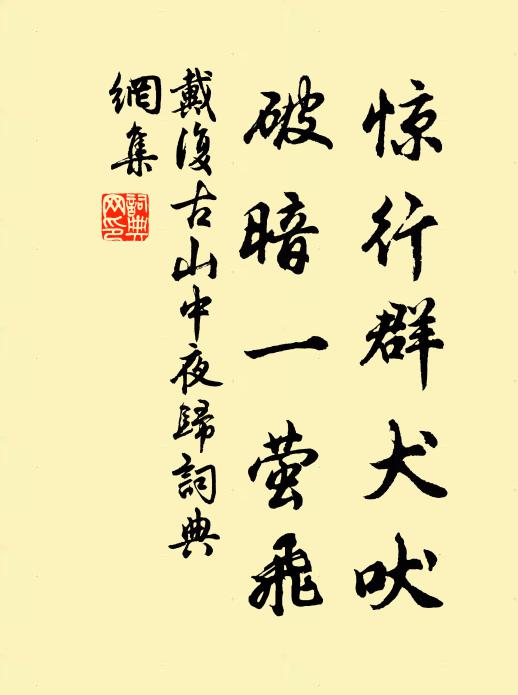 惊行群犬吠
破暗一萤飛
戴復古山中夜歸詞典
網集
詞典网印